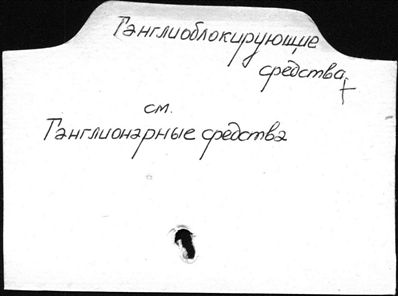 Ганглиоблокирующие
средства
см.
Ганглионарные средства